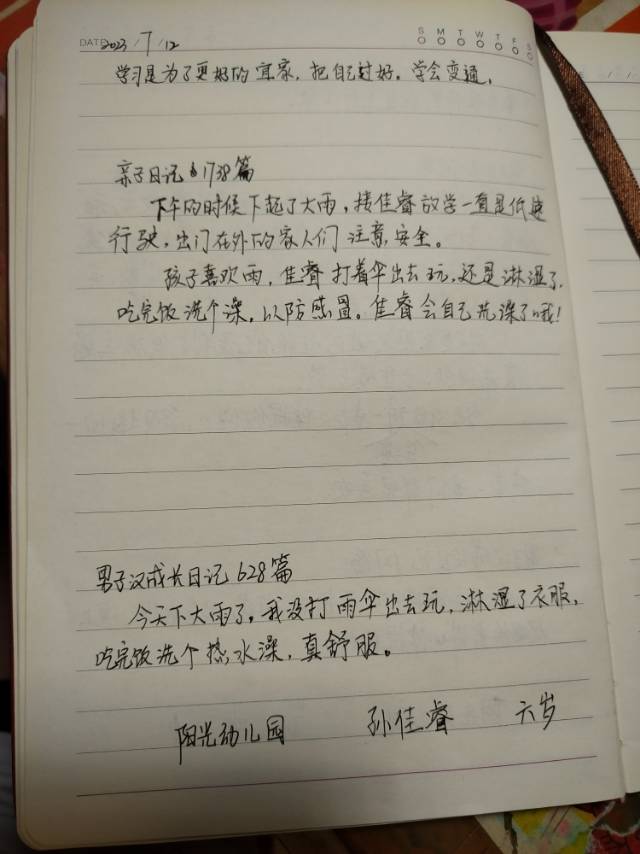 DATE 2023/7/12
S M T W T F S
学习是为了更好的宜家，把自己过好。学会变通。
亲子日记 1738篇
下午的时候下起了大雨，接佳睿放学一直是低速
行驶，出门在外的家人们注意安全。
孩子喜欢雨，佳睿打着伞出去玩，还是淋湿了，
吃完饭洗个澡，以防感冒。佳睿会自己洗澡了哦！
男子汉成长日记628篇
今天下大雨了。我没打雨伞出去玩，淋湿了衣服，
吃完饭洗个热水澡，真舒服。
阳光幼儿园 孙佳睿 六岁